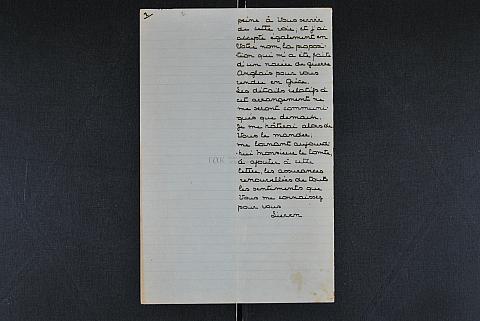 2
peine à vous servir
de cette voie, et j'ai
accepté également en
votre nom, la propo-
tion qui m'a été faite
d'un navire de guerre
Anglais pour vous
rendre en Grèce.
Les détails relatifs à
cet arrangement ne
me seront communi-
qués que demain,
Je me hâterai alors de
vous le mander,
me bornant aujourd'-
hui monsieur le Comte,
à ajouter à cette
lettre, les assurances
renouvellées de tous
les sentiments que
vous me connaissez
pour vous
Lieven